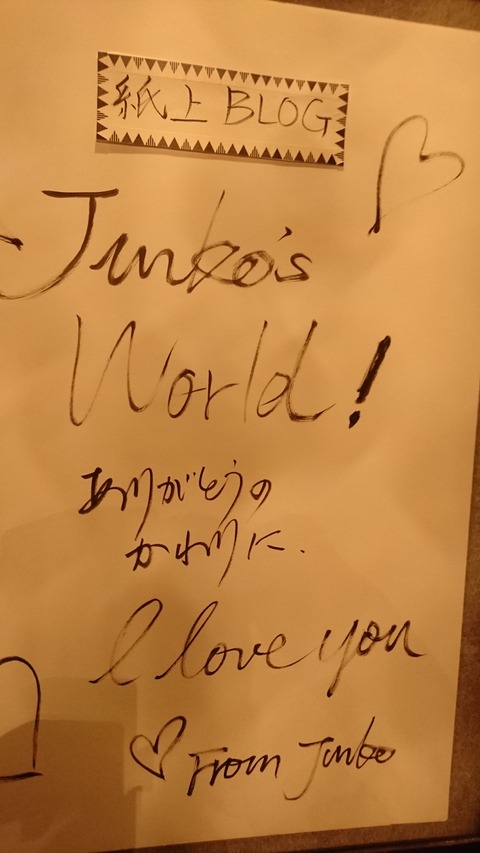 紙上 BLOG
Junko's
World!
ありがとうの
かわりに.
I love you
From Junko